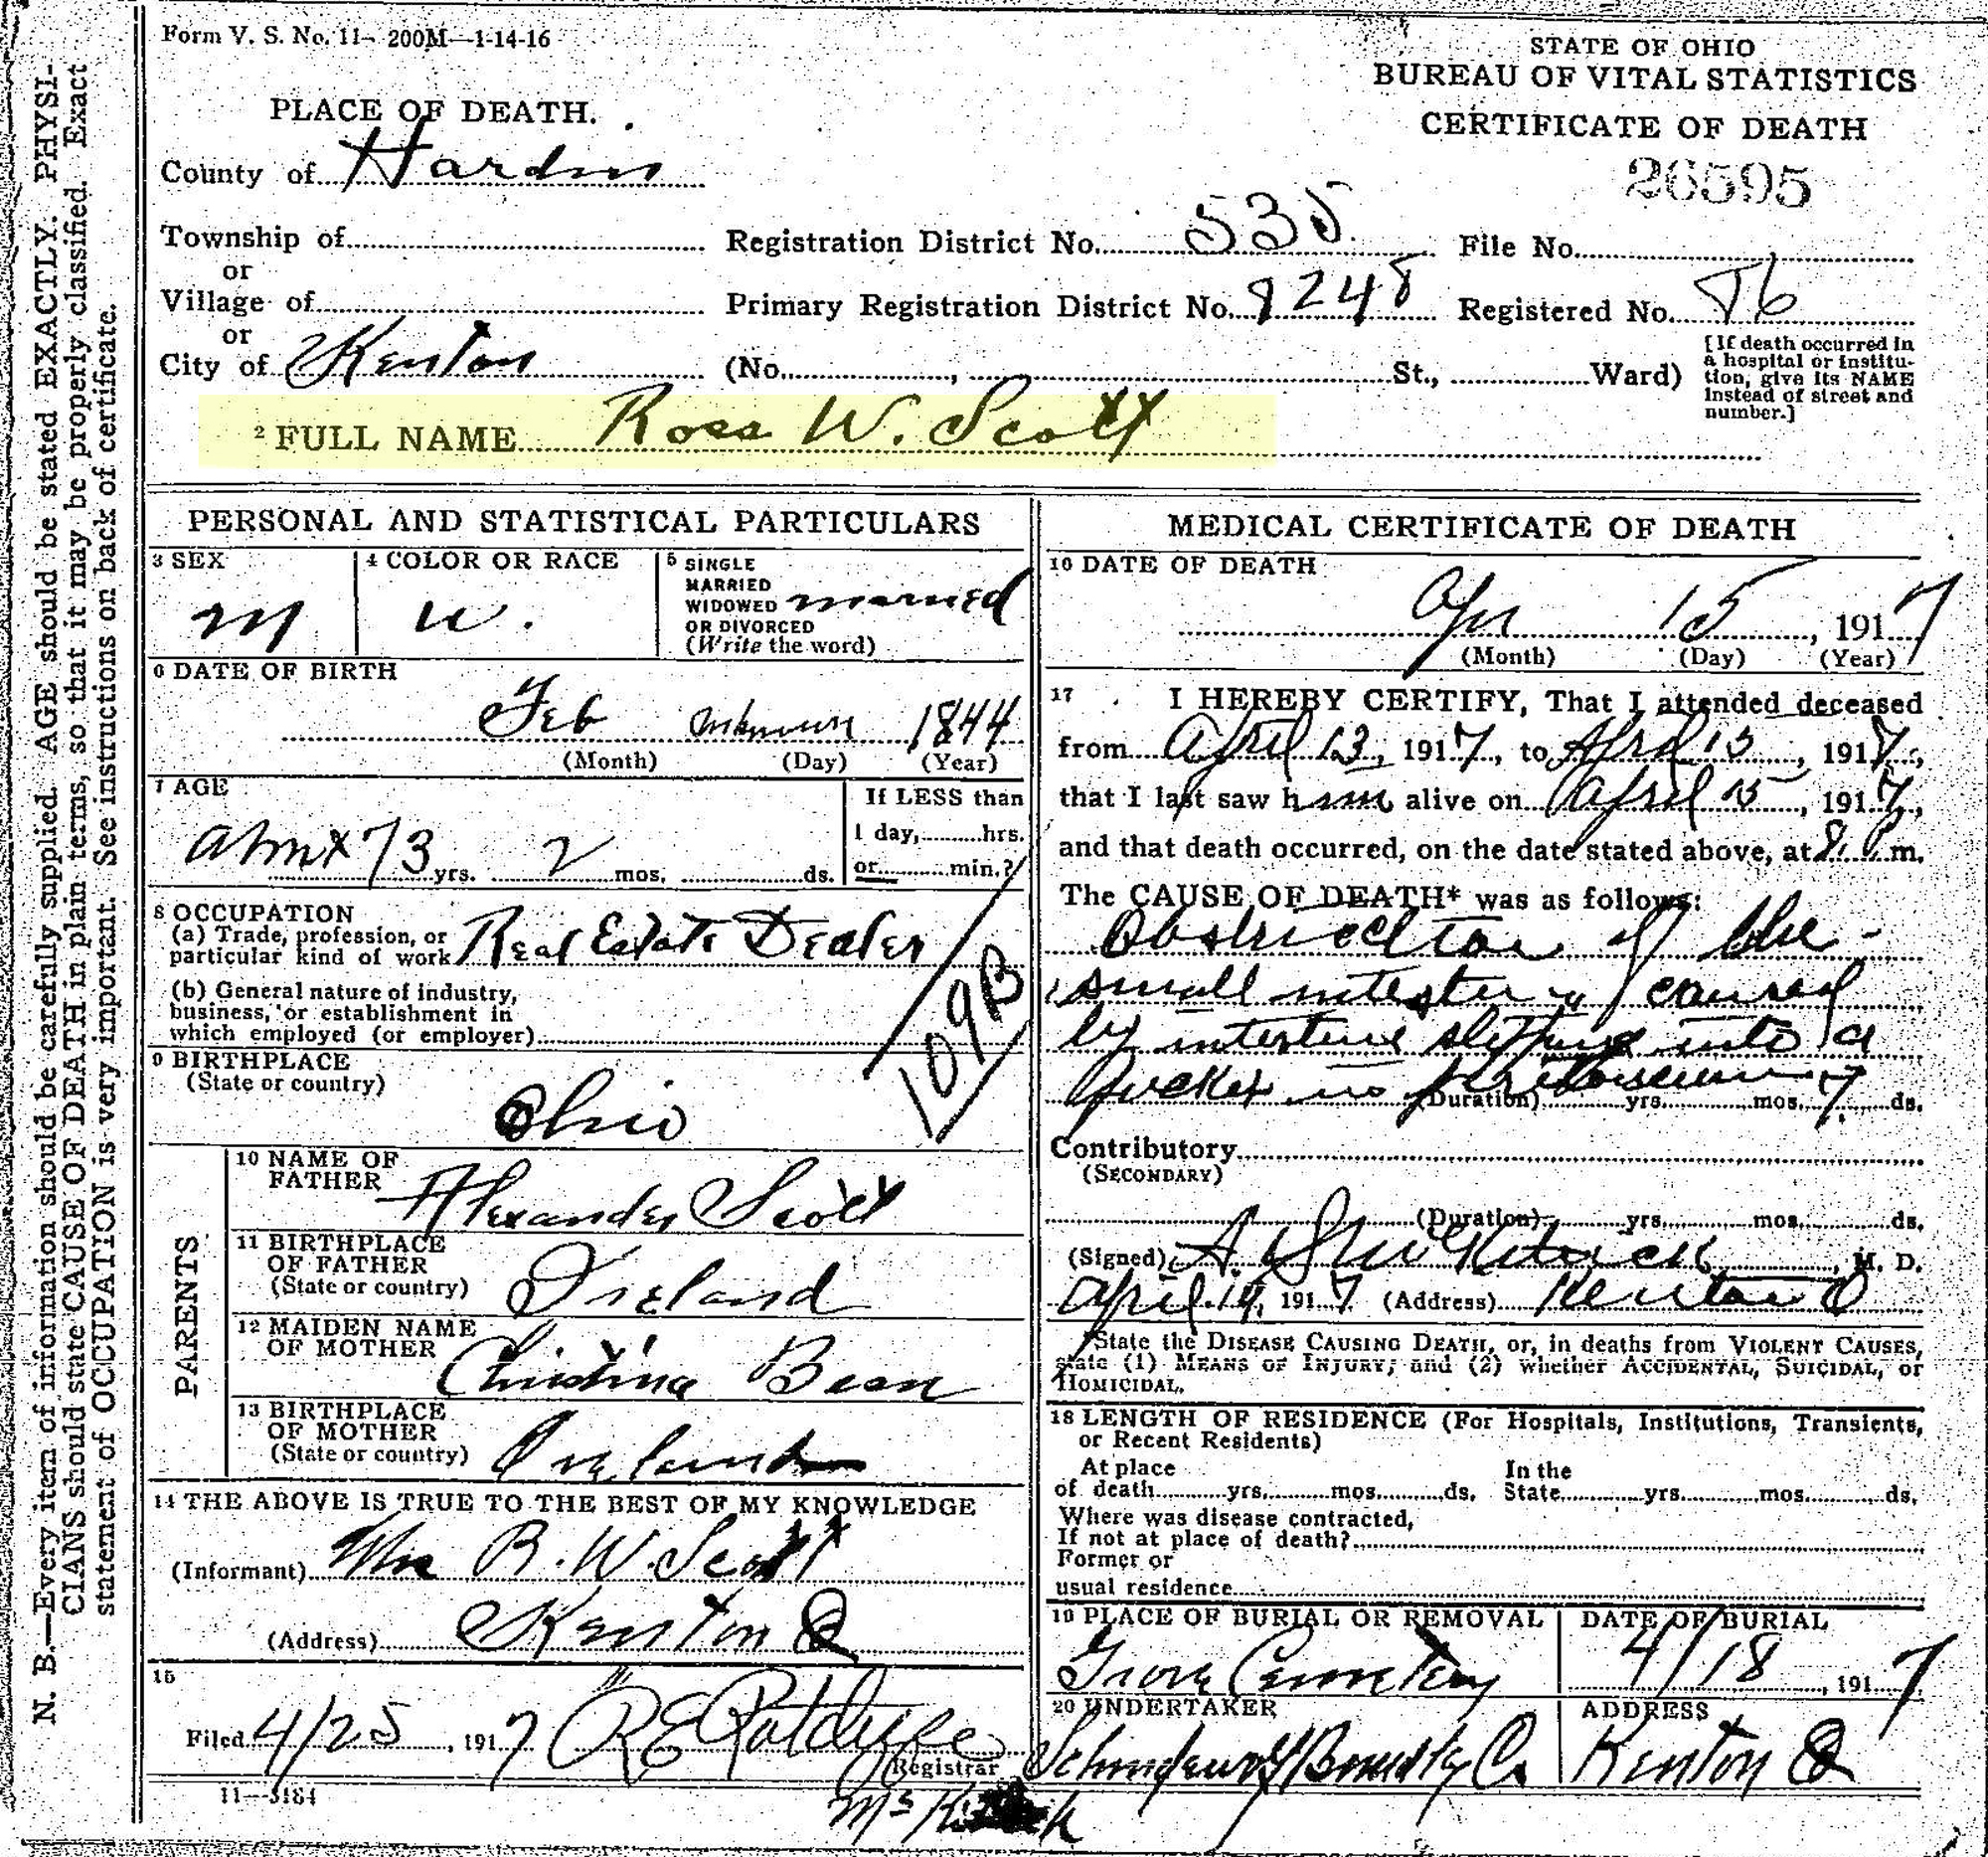 Form V. S. No. 11- 200M—1-14-16
STATE OF OHIO
BUREAU OF VITAL STATISTICS
CERTIFICATE OF DEATH
26595
PLACE OF DEATH.
County of Hardin
Township of
or
Village of
or
City of Kenton
Registration District No. 535 File No.
Primary Registration District No. 8248 Registered No. 86
(No. , St., Ward)
[If death occurred in
a hospital or institu-
tion, give its NAME
instead of street and
number.]
2 FULL NAME Ross W. Scott
PERSONAL AND STATISTICAL PARTICULARS
3 SEX
M
4 COLOR OR RACE
W.
5 SINGLE
MARRIED
WIDOWED
OR DIVORCED
(Write the word)
married
6 DATE OF BIRTH
Feb unknown 1844
(Month) (Day) (Year)
7 AGE
73 yrs. 2 mos. ds.
If LESS than
1 day, hrs.
or min.?
8 OCCUPATION
(a) Trade, profession, or
particular kind of work Real Estate Dealer
(b) General nature of industry,
business, or establishment in
which employed (or employer)
109B
9 BIRTHPLACE
(State or country)
Ohio
PARENTS
10 NAME OF
FATHER
Alexander Scott
11 BIRTHPLACE
OF FATHER
(State or country) Ireland
12 MAIDEN NAME
OF MOTHER
Christina Bean
13 BIRTHPLACE
OF MOTHER
(State or country) Ireland
14 THE ABOVE IS TRUE TO THE BEST OF MY KNOWLEDGE
(Informant) Mrs R. W. Scott
(Address) Kenton O
15
Filed 4/25, 1917
Registrar
11—3184
MEDICAL CERTIFICATE OF DEATH
16 DATE OF DEATH
Apr 15, 1917
(Month) (Day) (Year)
17 I HEREBY CERTIFY, That I attended deceased
from April 13, 1917, to April 15, 1917,
that I last saw him alive on April 15, 1917,
and that death occurred, on the date stated above, at 8 P m.
The CAUSE OF DEATH* was as follows:
Obstruction of the
small intestine caused
by intestine slipping into a
pocket in peritoneum
(Duration) yrs. mos. 7 ds.
Contributory
(SECONDARY)
(Duration) yrs. mos. ds.
(Signed) A. S. McKitrick, M. D.
April 19, 1917 (Address) Kenton O
State the DISEASE CAUSING DEATH, or, in deaths from VIOLENT CAUSES,
state (1) MEANS OF INJURY; and (2) whether ACCIDENTAL, SUICIDAL, or
HOMICIDAL.
18 LENGTH OF RESIDENCE (For Hospitals, Institutions, Transients,
or Recent Residents)
At place
of death yrs. mos. ds.
In the
State yrs. mos. ds.
Where was disease contracted,
If not at place of death?
Former or
usual residence
19 PLACE OF BURIAL OR REMOVAL
Grove Cemetery
DATE OF BURIAL
4/18, 1917
20 UNDERTAKER
Co
ADDRESS
Kenton O
N. B.—Every item of information should be carefully supplied. AGE should be stated EXACTLY. PHYSI-
CIANS should state CAUSE OF DEATH in plain terms, so that it may be properly classified. Exact
statement of OCCUPATION is very important. See instructions on back of certificate.